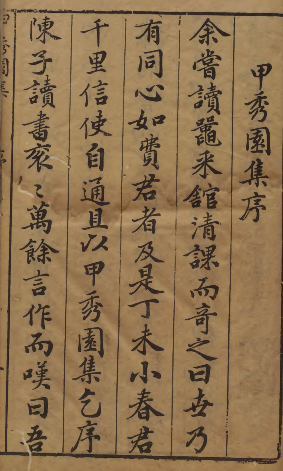 甲秀園集序
余嘗讀鼂采館清課而竒之曰世乃
有同心如費君者及是丁未小春君
千里信使自通且以甲秀園集乞序
陳子讀書袞〻萬餘言作而嘆曰吾
甲秀園集 序